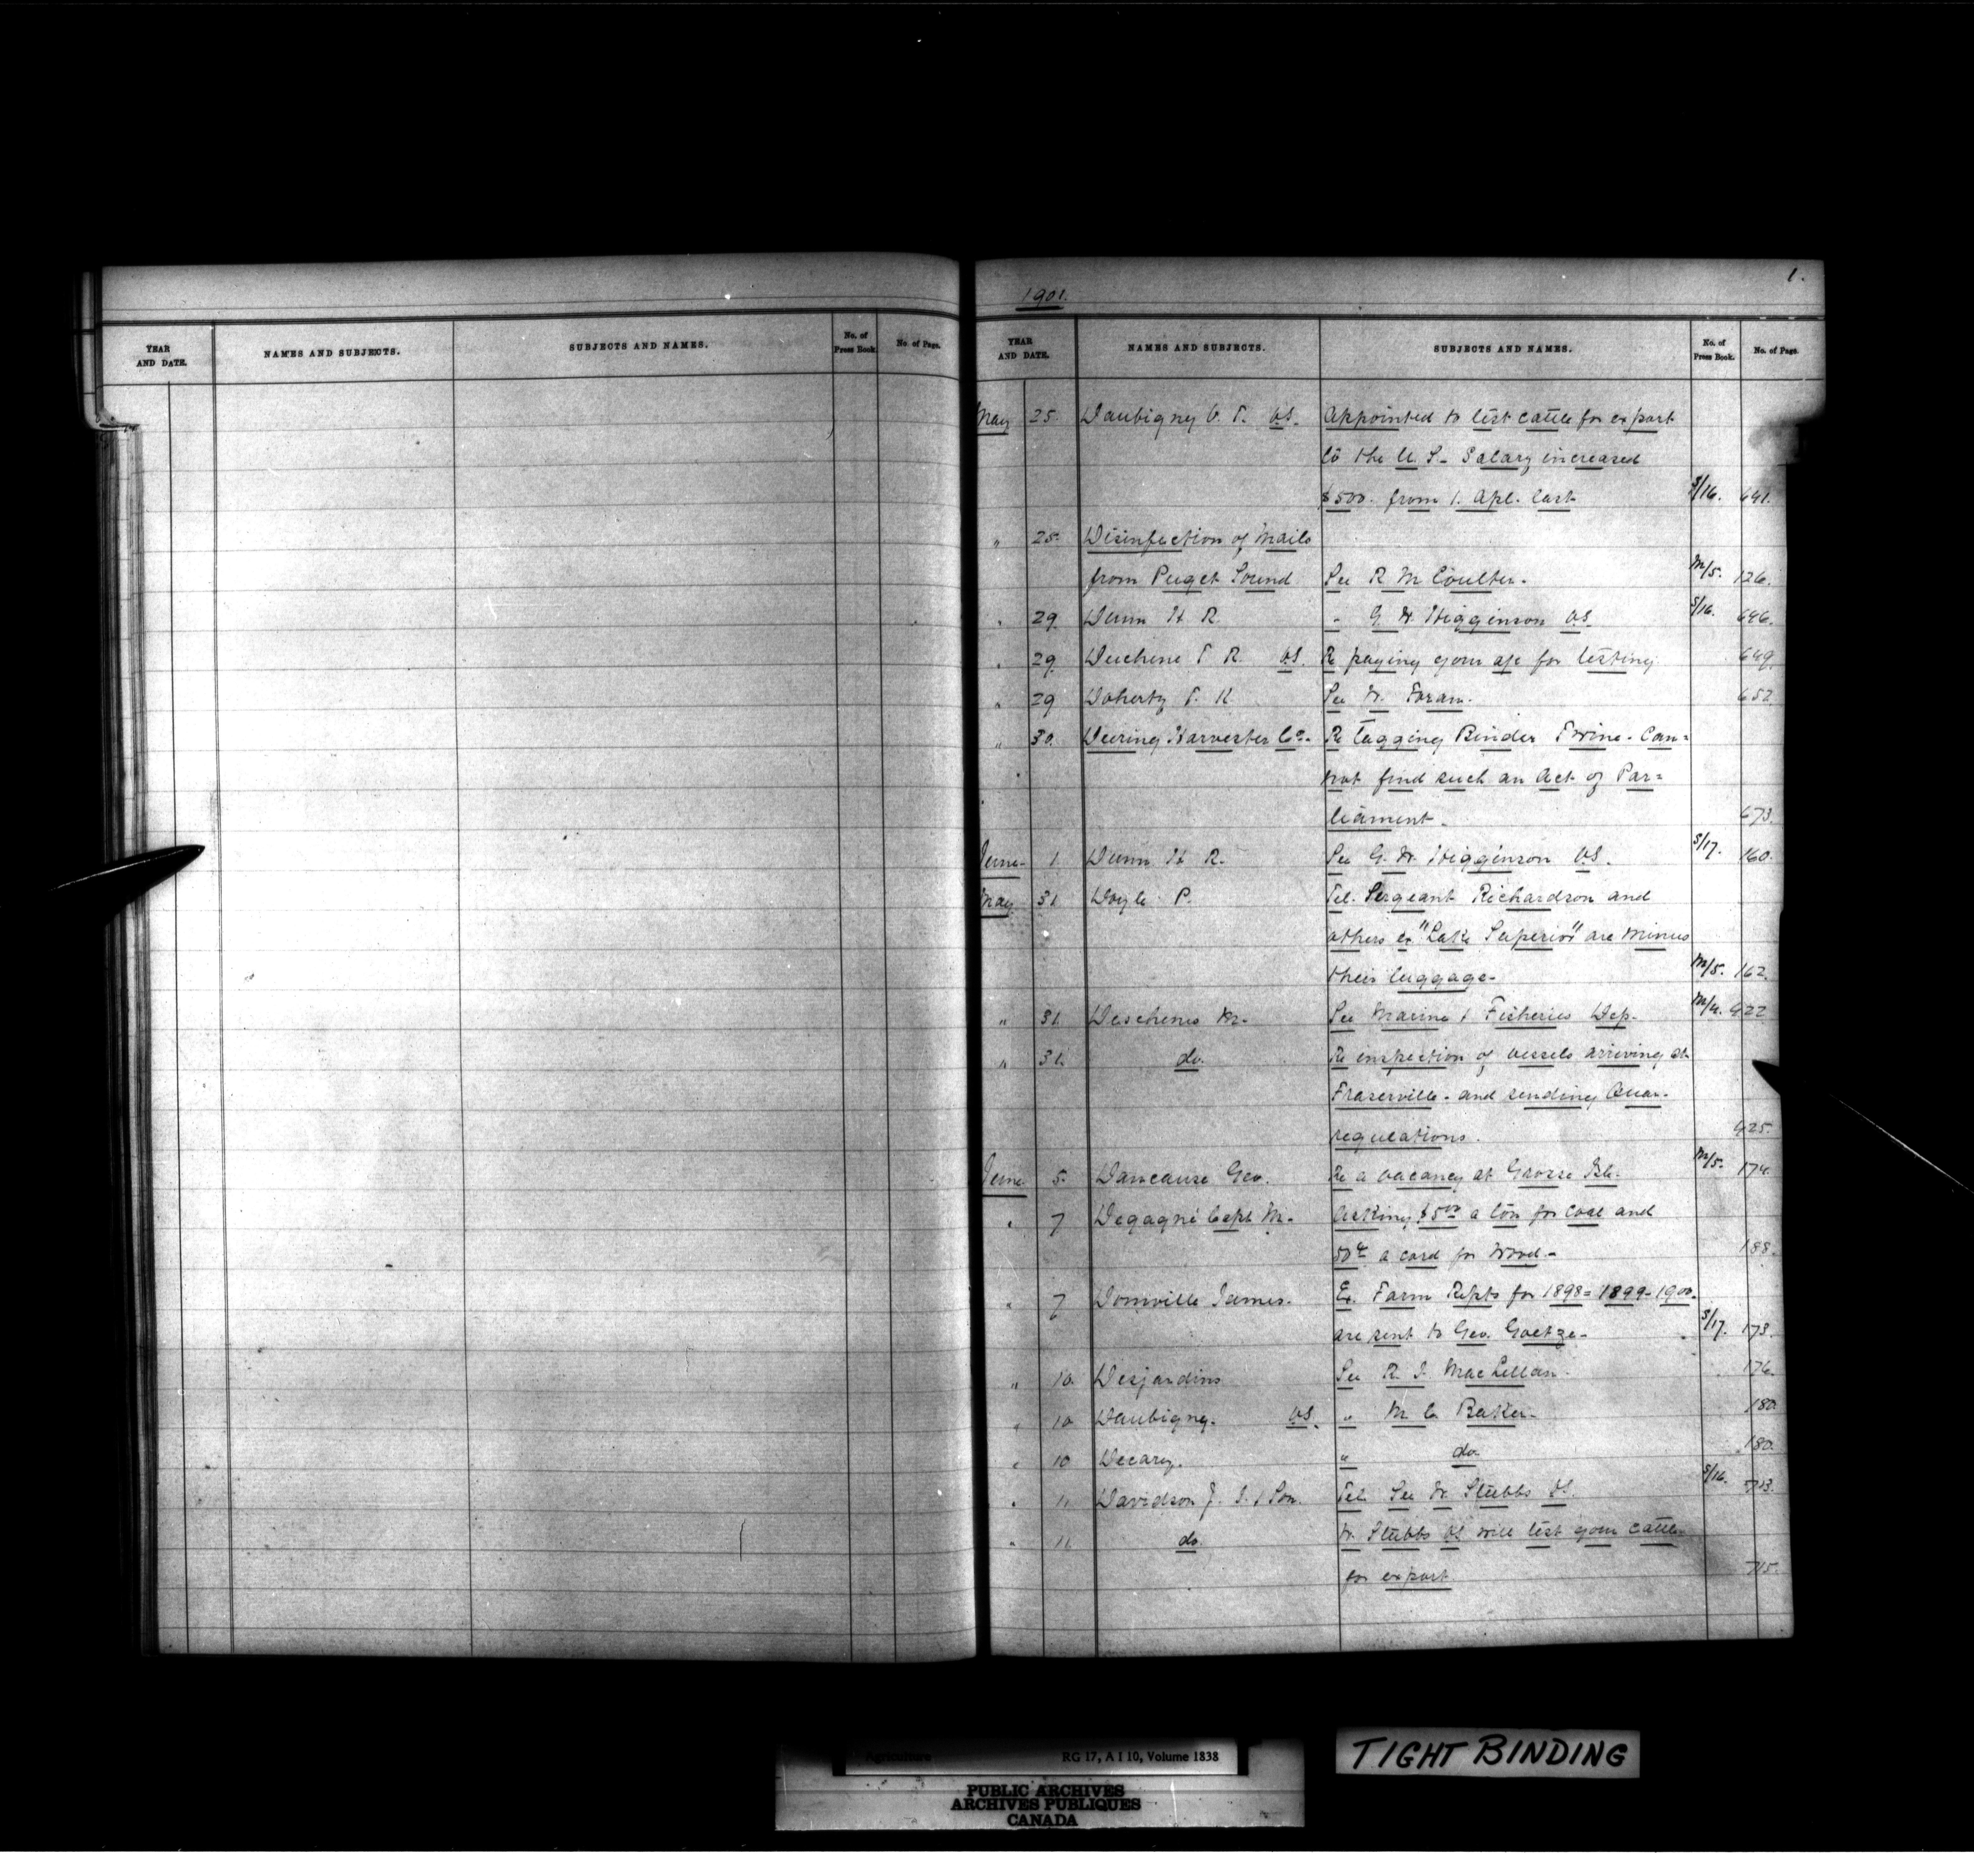 YEAR AND DATE. NAMES AND SUBJECTS. SUBJECTS AND NAMES. No. of Press Book. No. of Page.
1.
1901.
YEAR AND DATE. NAMES AND SUBJECTS. SUBJECTS AND NAMES. No. of Press Book. No. of Page.
May 25. Daubigny V. T. VS. Appointed to test cattle for export
to the U. S. - Salary increased
$500. from 1. Apl. last S/16. 641.
" 25. Disinfection of Mails
from Puget Sound See R M Coulter. M/5. 126.
" 29. Dunn H R. " G. W. Higginson VS. S/16. 646.
" 29. Duchene T R. VS. Re paying your a/c for testing. 649.
" 29 Doherty T. K. See W. Foran. 652.
" 30. Deering Harvester Co. Re Tagging Binder Twine - Can=
not find such an Act of Par=
liament. 673.
June 1. Dunn H R. See G. W. Higginson VS. S/17. 160.
May 31 Doyle P. Tel. Sergeant Richardson and
others ex "Lake Superior" are minus
their luggage - M/5. 162.
" 31. Deschenes M. See Marine & Fisheries Dep. M/4. 422
" 31. do. Re inspection of vessels arriving at
Fraserville - and sending Quar.
regulations. 425.
June 5. Dancause Geo. Re a vacancy at Grosse Isle. M/5. 174.
" 7 Degagné Capt M. Asking $5.00 a ton for coal and
50¢ a cord for wood. - 188.
" 7 Domville James. Ex. Farm Repts for 1898 = 1899 - 1900.
are sent to Geo. Goetze - S/17. 173.
" 10. Desjardins See R. I. MacLellan. 176.
" 10 Daubigny. VS. " M C. Baker. 180.
" 10 Decary. " do 180.
" 11. Davidson J. I. & Son. Tel. See W. Stubbs VS. S/16. 713.
" 11. do. W. Stubbs VS will test your cattle
for export 715.
Agriculture RG 17, A I 10, Volume 1838
PUBLIC ARCHIVES
ARCHIVES PUBLIQUES
CANADA
TIGHT BINDING